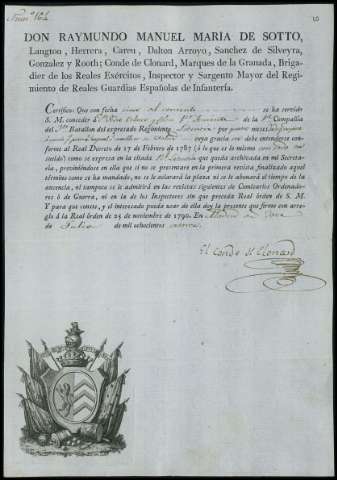 10
DON RAYMUNDO MANUEL MARÍA DE SOTTO,
Langton, Herrera, Careu, Dalton Arroyo, Sanchez de Silveyra,
Gonzalez y Rooth; Conde de Clonard, Marques de la Granada, Briga-
dier de los Reales Exércitos, Inspector y Sargento Mayor del Regi-
miento de Reales Guardias Españolas de Infantería.
Certifico: Que con fecha se ha servido
S. M. conceder á de la Compañía
del Batallon del expresado Regimiento Licencia por meses
cuya gracia se debe entenderse con-
forme al Real Decreto de 17 de Febrero de 1787 (á lo que es lo mismo con
sueldo) como se expresa en la citada Licencia que queda archivada en mi Secreta-
ría, previniéndose en ella que si no se presentare en la primera revista finalizado aquel
término como se ha mandado, no se le aclarará la plaza ni se le abonará el tiempo de la
ausencia, ni tampoco se le admitirá en las revistas siguientes de Comisarios Ordenadores
ó de Guerra, ni en la de los Inspectores sin que preceda Real órden de S. M.
Y para que conste, y el interesado pueda usar de ella doy la presente que firmo con arre-
glo á la Real órden de 25 de noviembre de 1790. En Madrid
de Julio de mil ochocientos
El Conde de Clonard